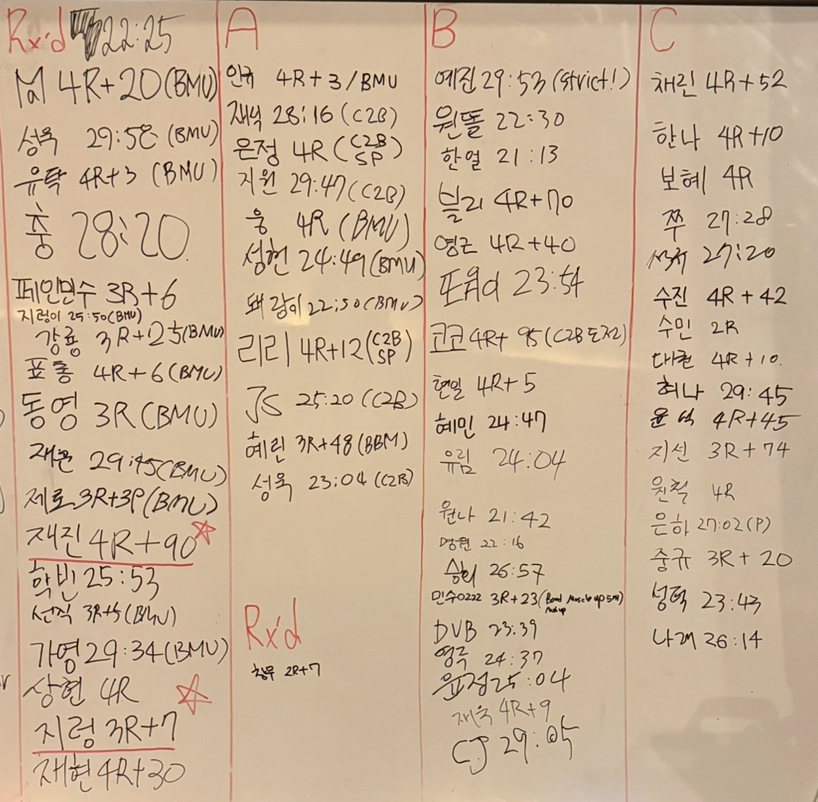 Rx'd 22:25
4R+20(BMU)
성욱 29:58 (BMU)
유탁 4R+3 (BMU)
충 28:20
페인민수 3R+6
지렁이 25:50(BMU)
강룡 3R+25(BMU)
표통 4R+6(BMU)
동영 3R(BMU)
재균 29:45(BMU)
제로 3R+39(BMU)
재진 4R+90
학빈 25:53
선직 3R+5(BMU)
가영 29:34(BMU)
상현 4R
지렁 3R+7
재현 4R+30
A
인규 4R+3/BMU
재식 28:16(C2B)
은정 4R(C2B SP)
지원 29:47(C2B)
웅 4R(BMU)
성헌 24:49(BMU)
돼람이 22:50(BMU)
리리 4R+12(C2B SP)
JS 25:20 (C2B)
혜린 3R+48(BBM)
성욱 23:04 (C2B)
Rx'd
2R+7
B
예진 29:53 (strict!)
원돌 22:30
한얼 21:13
블리 4R+70
영근 4R+40
23:54
코코 4R+95(C2B도전)
현일 4R+5
혜민 24:47
유림 24:04
원나 21:42
22:16
승희 26:57
민수0222 3R+23
DVB 23:39
영주 24:37
윤정 25:04
재욱 4R+9
CJ 29:05
C
채린 4R+52
한나 4R+10
보혜 4R
쭈 27:28
27:20
수진 4R+42
수민 2R
4R+10.
허나 29:45
윤석 4R+45
지선 3R+74
원척 4R
은하 27:02(P)
중규 3R+20
성덕 23:43
나래 26:14